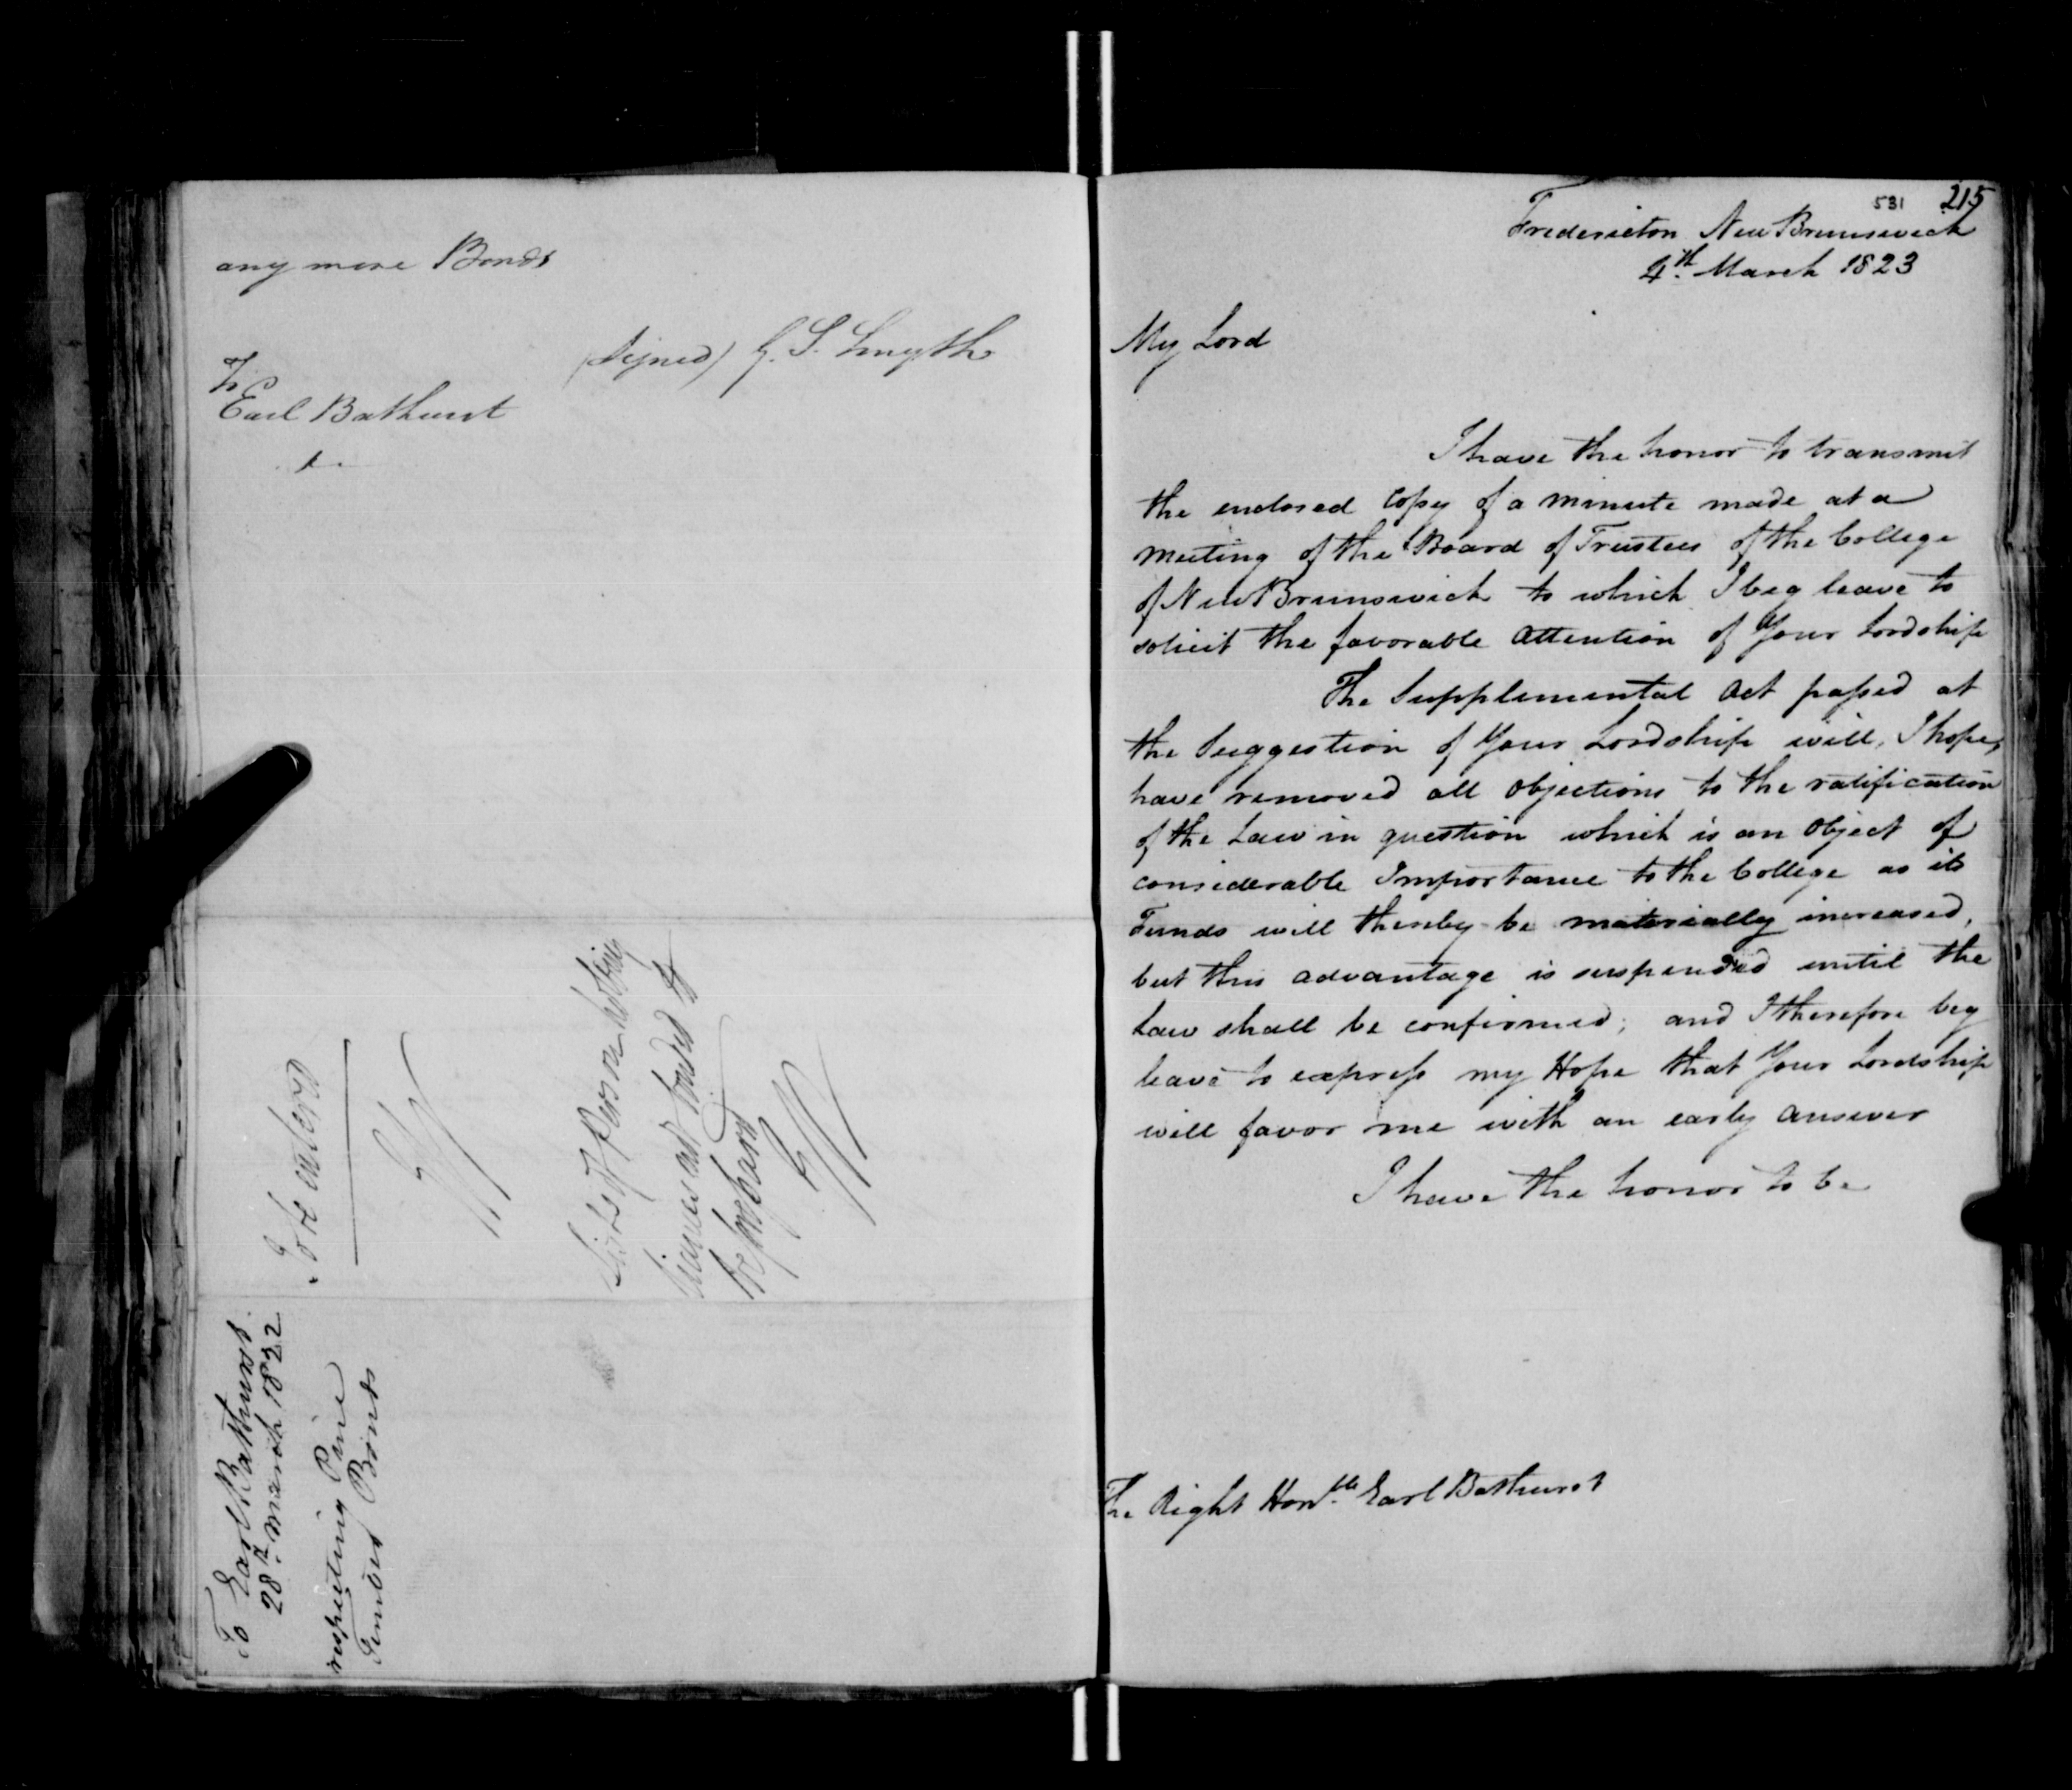 any more Bonds
(signed) G. S. Smyth
To
Earl Bathurst
To be entered
Lists of Persons holding
licences and bonds to
be prepared
To Earl Bathurst
28th March 1822
respecting Pine
Timber Bonds
531 215
Fredericton New Brunswick
4th March 1823
My Lord
I have the honor to transmit
the enclosed Copy of a Minute made at a
Meeting of the Board of Trustees of the College
of New Brunswick to which I beg leave to
solicit the favorable Attention of Your Lordship
The Supplemental Act paſsed at
the Suggestion of Your Lordship will, I hope,
have removed all Objections to the ratification
of the Law in question which is an Object of
considerable Importance to the College as its
Funds will thereby be materially increased,
but this advantage is suspended until the
Law shall be confirmed; and I therefore beg
leave to expreſs my Hope that Your Lordship
will favor me with an early Answer
I have the honor to be
The Right Honble Earl Bathurst